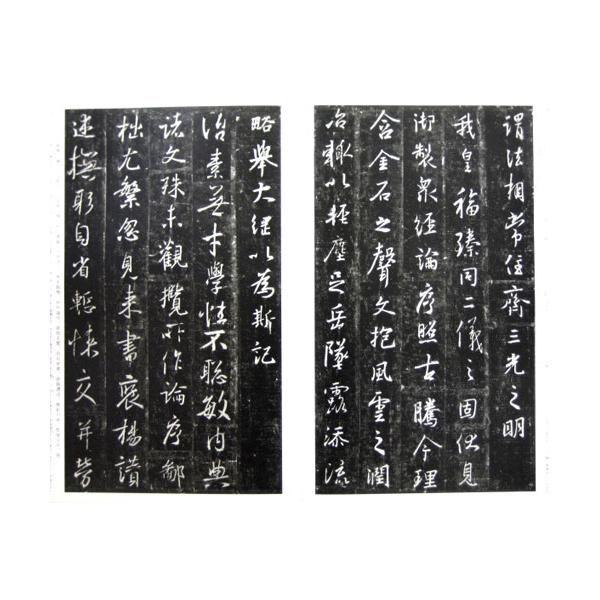 謂法相常住齊三光之明
我皇福臻同二儀之固伏見
御製衆經論序照古騰今理
含金石之聲文抱風雲之潤
治輒以輕塵足岳墜露添流
略舉大綱以為斯記
治素無才學性不聰敏內典
諸文殊未觀攬所作論序鄙
拙尤繁忽見來書褒揚讚
述撫躬自省慙悚交并勞